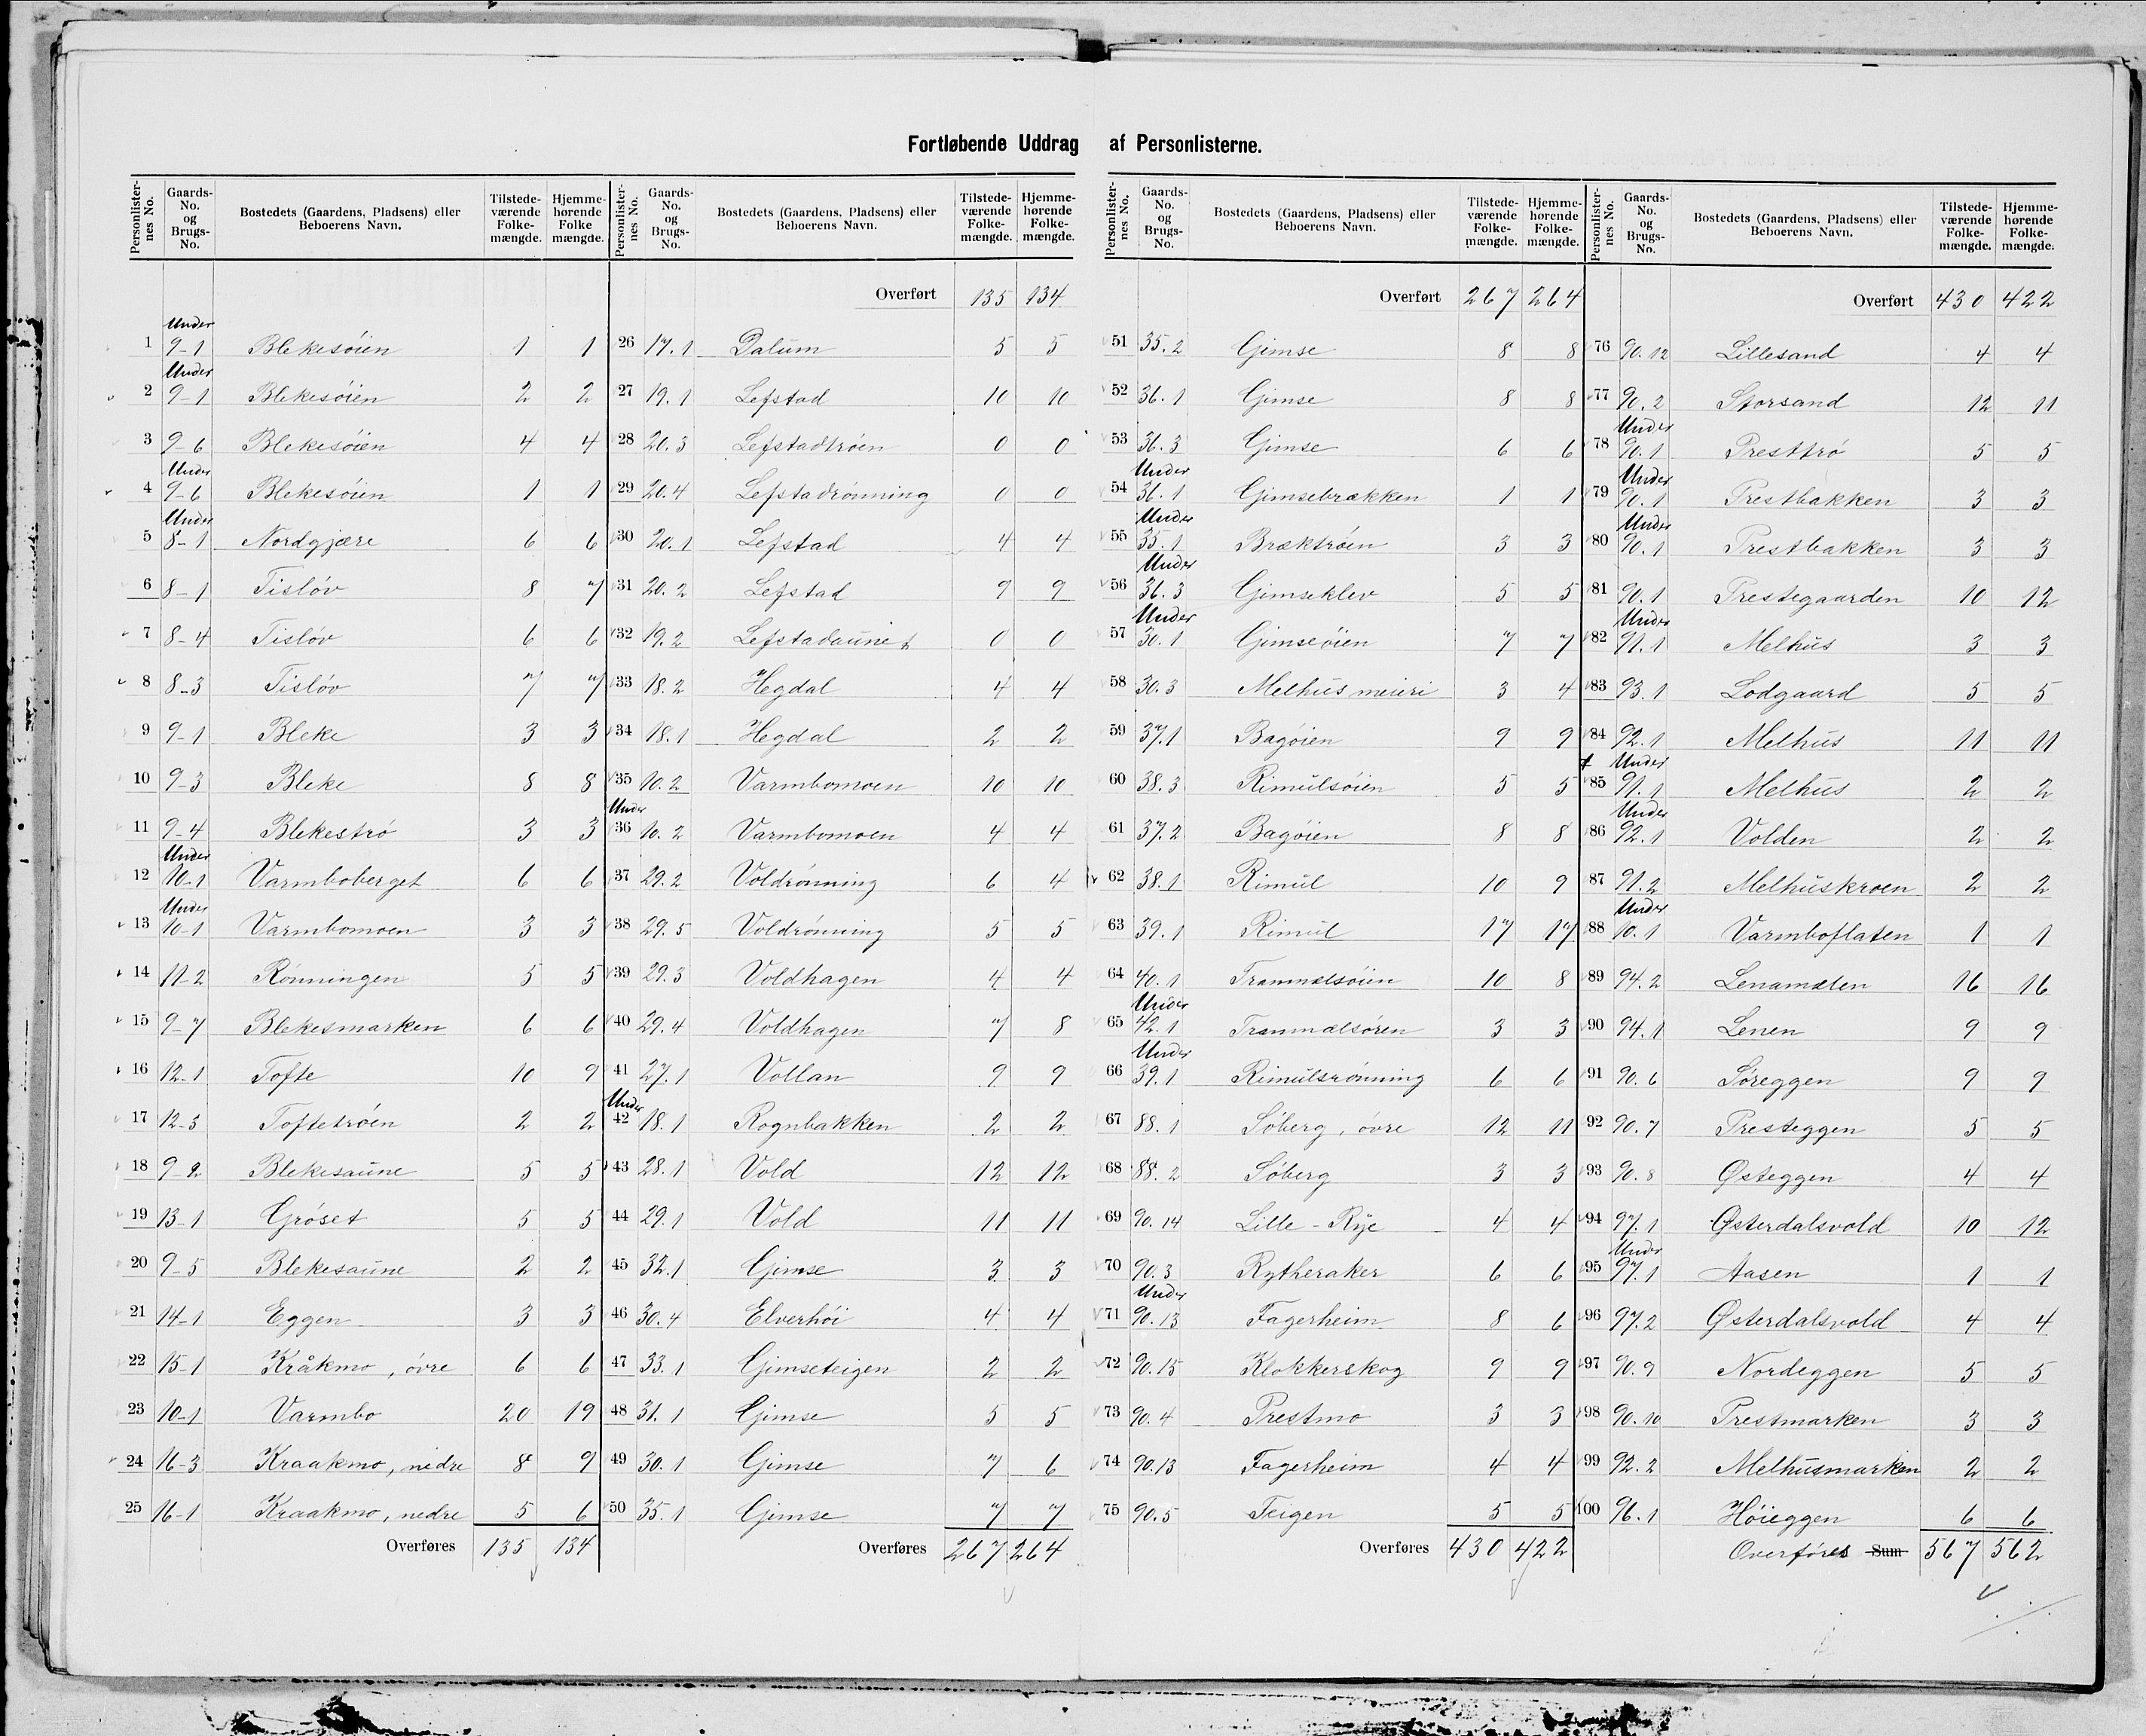 Fortløbende Uddrag af Personlisterne.
Personlisternes No. Gaards-No. og Brugs-No. Bostedets (Gaardens, Pladsens) eller Beboerens Navn. Tilstedeværende Folkemængde. Hjemmehørende Folkemængde.
1 Under 9-1 Blekesöien 1 1
2 Under 9-1 Blekesöien 2 2
3 9-6 Blekesöien 4 4
4 Under 9-6 Blekesöien 1 1
5 Under 8-1 Nordgjære 6 6
6 8-1 Tislöv 8 7
7 8-4 Tislöv 6 6
8 8-3 Tislöv 7 7
9 9-1 Bleke 3 3
10 9-3 Bleke 8 8
11 9-4 Blekeströ 3 3
12 Under 10-1 Varmboberget 6 6
13 Under 10-1 Varmbomoen 3 3
14 11-2 Rönningen 5 5
15 9-7 Blekesmarken 6 6
16 12-1 Tofte 10 9
17 12-3 Toftetröen 2 2
18 9-2 Blekesaune 5 5
19 13-1 Gröset 5 5
20 9-5 Blekesaune 2 2
21 14-1 Eggen 3 3
22 15-1 Kråkmo, övre 6 6
23 10-1 Varmbo 20 19
24 16-3 Kraakmo, nedre 8 9
25 16-1 Kraakmo, nedre 5 6
Overføres 135 134
Personlisternes No. Gaards-No. og Brugs-No. Bostedets (Gaardens, Pladsens) eller Beboerens Navn. Tilstedeværende Folkemængde. Hjemmehørende Folkemængde.
Overført 135 134
26 17.1 Dalum 5 5
27 19.1 Lefstad 10 10
28 20.3 Lefstadtröen 0 0
29 20.4 Lefstadrönning 0 0
30 20.1 Lefstad 4 4
31 20.2 Lefstad 9 9
32 19.2 Lefstadaunet 0 0
33 18.2 Hegdal 4 4
34 18.1 Hegdal 2 2
35 10.2 Varmbomoen 10 10
36 Under 10.2 Varmbomoen 4 4
37 29.2 Voldrönning 6 4
38 29.5 Voldrönning 5 5
39 29.3 Voldhagen 4 4
40 29.4 Voldhagen 7 8
41 27.1 Vollan 9 9
42 Under 18.1 Rognbakken 2 2
43 28.1 Vold 12 12
44 29.1 Vold 11 11
45 32.1 Gimse 3 3
46 30.4 Elverhöi 4 4
47 33.1 Gimseteigen 2 2
48 31.1 Gimse 5 5
49 30.1 Gimse 7 6
50 35.1 Gimse 7 7
Overføres 267 264
Personlisternes No. Gaards-No. og Brugs-No. Bostedets (Gaardens, Pladsens) eller Beboerens Navn. Tilstedeværende Folkemængde. Hjemmehørende Folkemængde.
Overført 267 264
51 35.2 Gimse 8 8
52 36.1 Gimse 8 8
53 36.3 Gimse 6 6
54 Under 36.1 Gimsebrækken 1 1
55 Under 35.1 Bræktröen 3 3
56 Under 36.3 Gimseklev 5 5
57 Under 30.1 Gimseöien 7 7
58 30.3 Melhus meieri 3 4
59 37.1 Bagöien 9 9
60 38.3 Rimulsöien 5 5
61 37.2 Bagöien 8 8
62 38.1 Rimul 10 9
63 39.1 Rimul 17 17
64 40.1 Tranmælsöien 10 8
65 Under 42.1 Tranmælsören 3 3
66 Under 39.1 Rimulsrönning 6 6
67 88.1 Söberg, övre 12 11
68 88.2 Söberg 3 3
69 90.14 Lille-Rye 4 4
70 90.3 Rytheraker 6 6
71 Under 90.13 Fagerheim 8 6
72 90.15 Klokkerskog 9 9
73 90.4 Prestmo 3 3
74 90.13 Fagerheim 4 4
75 90.5 Teigen 5 5
Overføres 430 422
Personlisternes No. Gaards-No. og Brugs-No. Bostedets (Gaardens, Pladsens) eller Beboerens Navn. Tilstedeværende Folkemængde. Hjemmehørende Folkemængde.
Overført 430 422
76 90.12 Lillesand 4 4
77 90.2 Storsand 12 11
78 Under 90.1 Presttrö 5 5
79 Under 90.1 Prestbakken 3 3
80 Under 90.1 Prestbakken 3 3
81 90.1 Prestegaarden 10 12
82 Under 91.1 Melhus 3 3
83 93.1 Lodgaard 5 5
84 92.1 Melhus 11 11
85 Under 91.1 Melhus 2 2
86 Under 92.1 Volden 2 2
87 91.2 Melhuskroen 2 2
88 Under 10.1 Varmboflaten 1 1
89 94.2 Lenamælen 16 16
90 94.1 Lenen 9 9
91 90.6 Söreggen 9 9
92 90.7 Presteggen 5 5
93 90.8 Østeggen 4 4
94 97.1 Østerdalsvold 10 12
95 Under 97.1 Aasen 1 1
96 97.2 Østerdalsvold 4 4
97 90.9 Nordeggen 5 5
98 90.10 Prestmarken 3 3
99 92.2 Melhusmarken 2 2
100 96.1 Höieggen 6 6
Overföres Sum 567 562